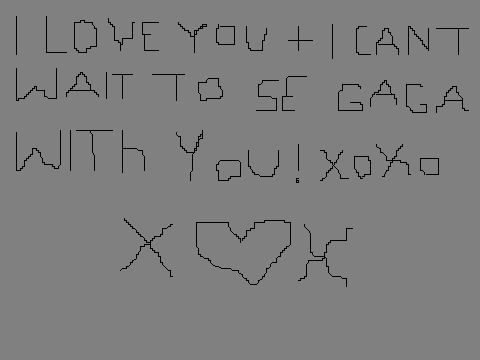 I LOVE YOU + I CANT
WAIT TO SE GAGA
WITh YOU! XOXO
X ♡ X